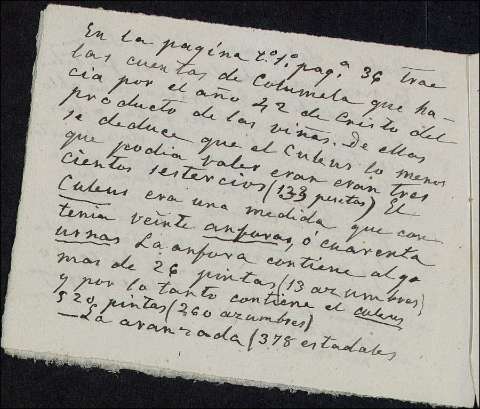 En la pagina t.º 1.º pag.ª 36 trae
las cuentas de Columela que ha-
cia por el año 42 de Cristo del
producto de las viñas. De ellas
se deduce que el Culeus lo menos
que podia valer eran eran tres
cientos sestercios (133 pesetas) El
Culeus era una medida que con
tenia veinte anforas, ó cuarenta
urnas La anfora contiene algo
mas de 26 pintas (13 azumbres)
y por lo tanto contiene el culeus
520 pintas (260 azumbres)
La aranzada (378 estadales